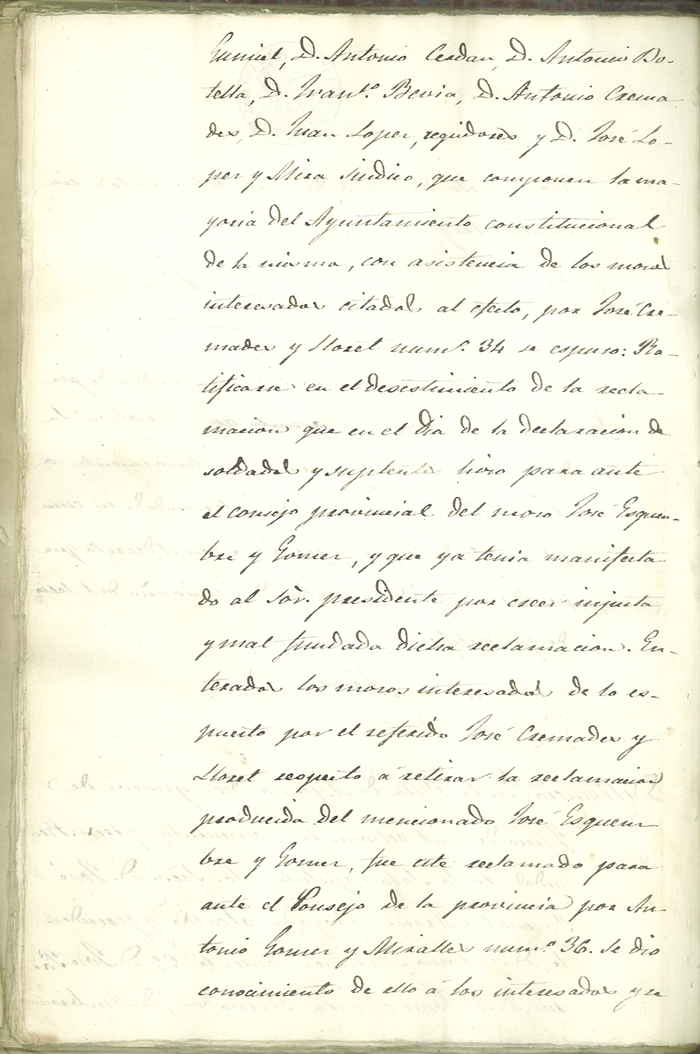 Gumiel, D. Antonio Cerdan, D. Antonio Bo-
tella, D. Fran.co Bevia, D. Antonio Crema
des, D. Juan Lopez, regidores y D. José Lo-
pez y Mira sindico, que componen la ma-
yoria del Ayuntamiento constitucional
de la misma, con asistencia de los mozos
interesados citados al efecto, por José Cre-
mades y Lloret num.o 34 se espuso: Ra-
tificarse en el desestimiento de la recla-
macion que en el dia de la declaracion de
soldados y suplente hizo para ante
el consejo provincial del mozo José Esquem-
bre y Gomez, y que ya tenia manifesta
do al Sor. presidente por creer injusta
y mal fundada dicha reclamacion. En-
terados los mozos interesados de lo es-
puesto por el referido José Cremades y
Lloret respecto á retirar la reclamacion
producida del mencionado José Esquem
bre y Gomez, fue este reclamado para
ante el Consejo de la provincia por An-
tonio Gomez y Miralles num.o 36. se dio
conocimiento de ello á los interesados y se